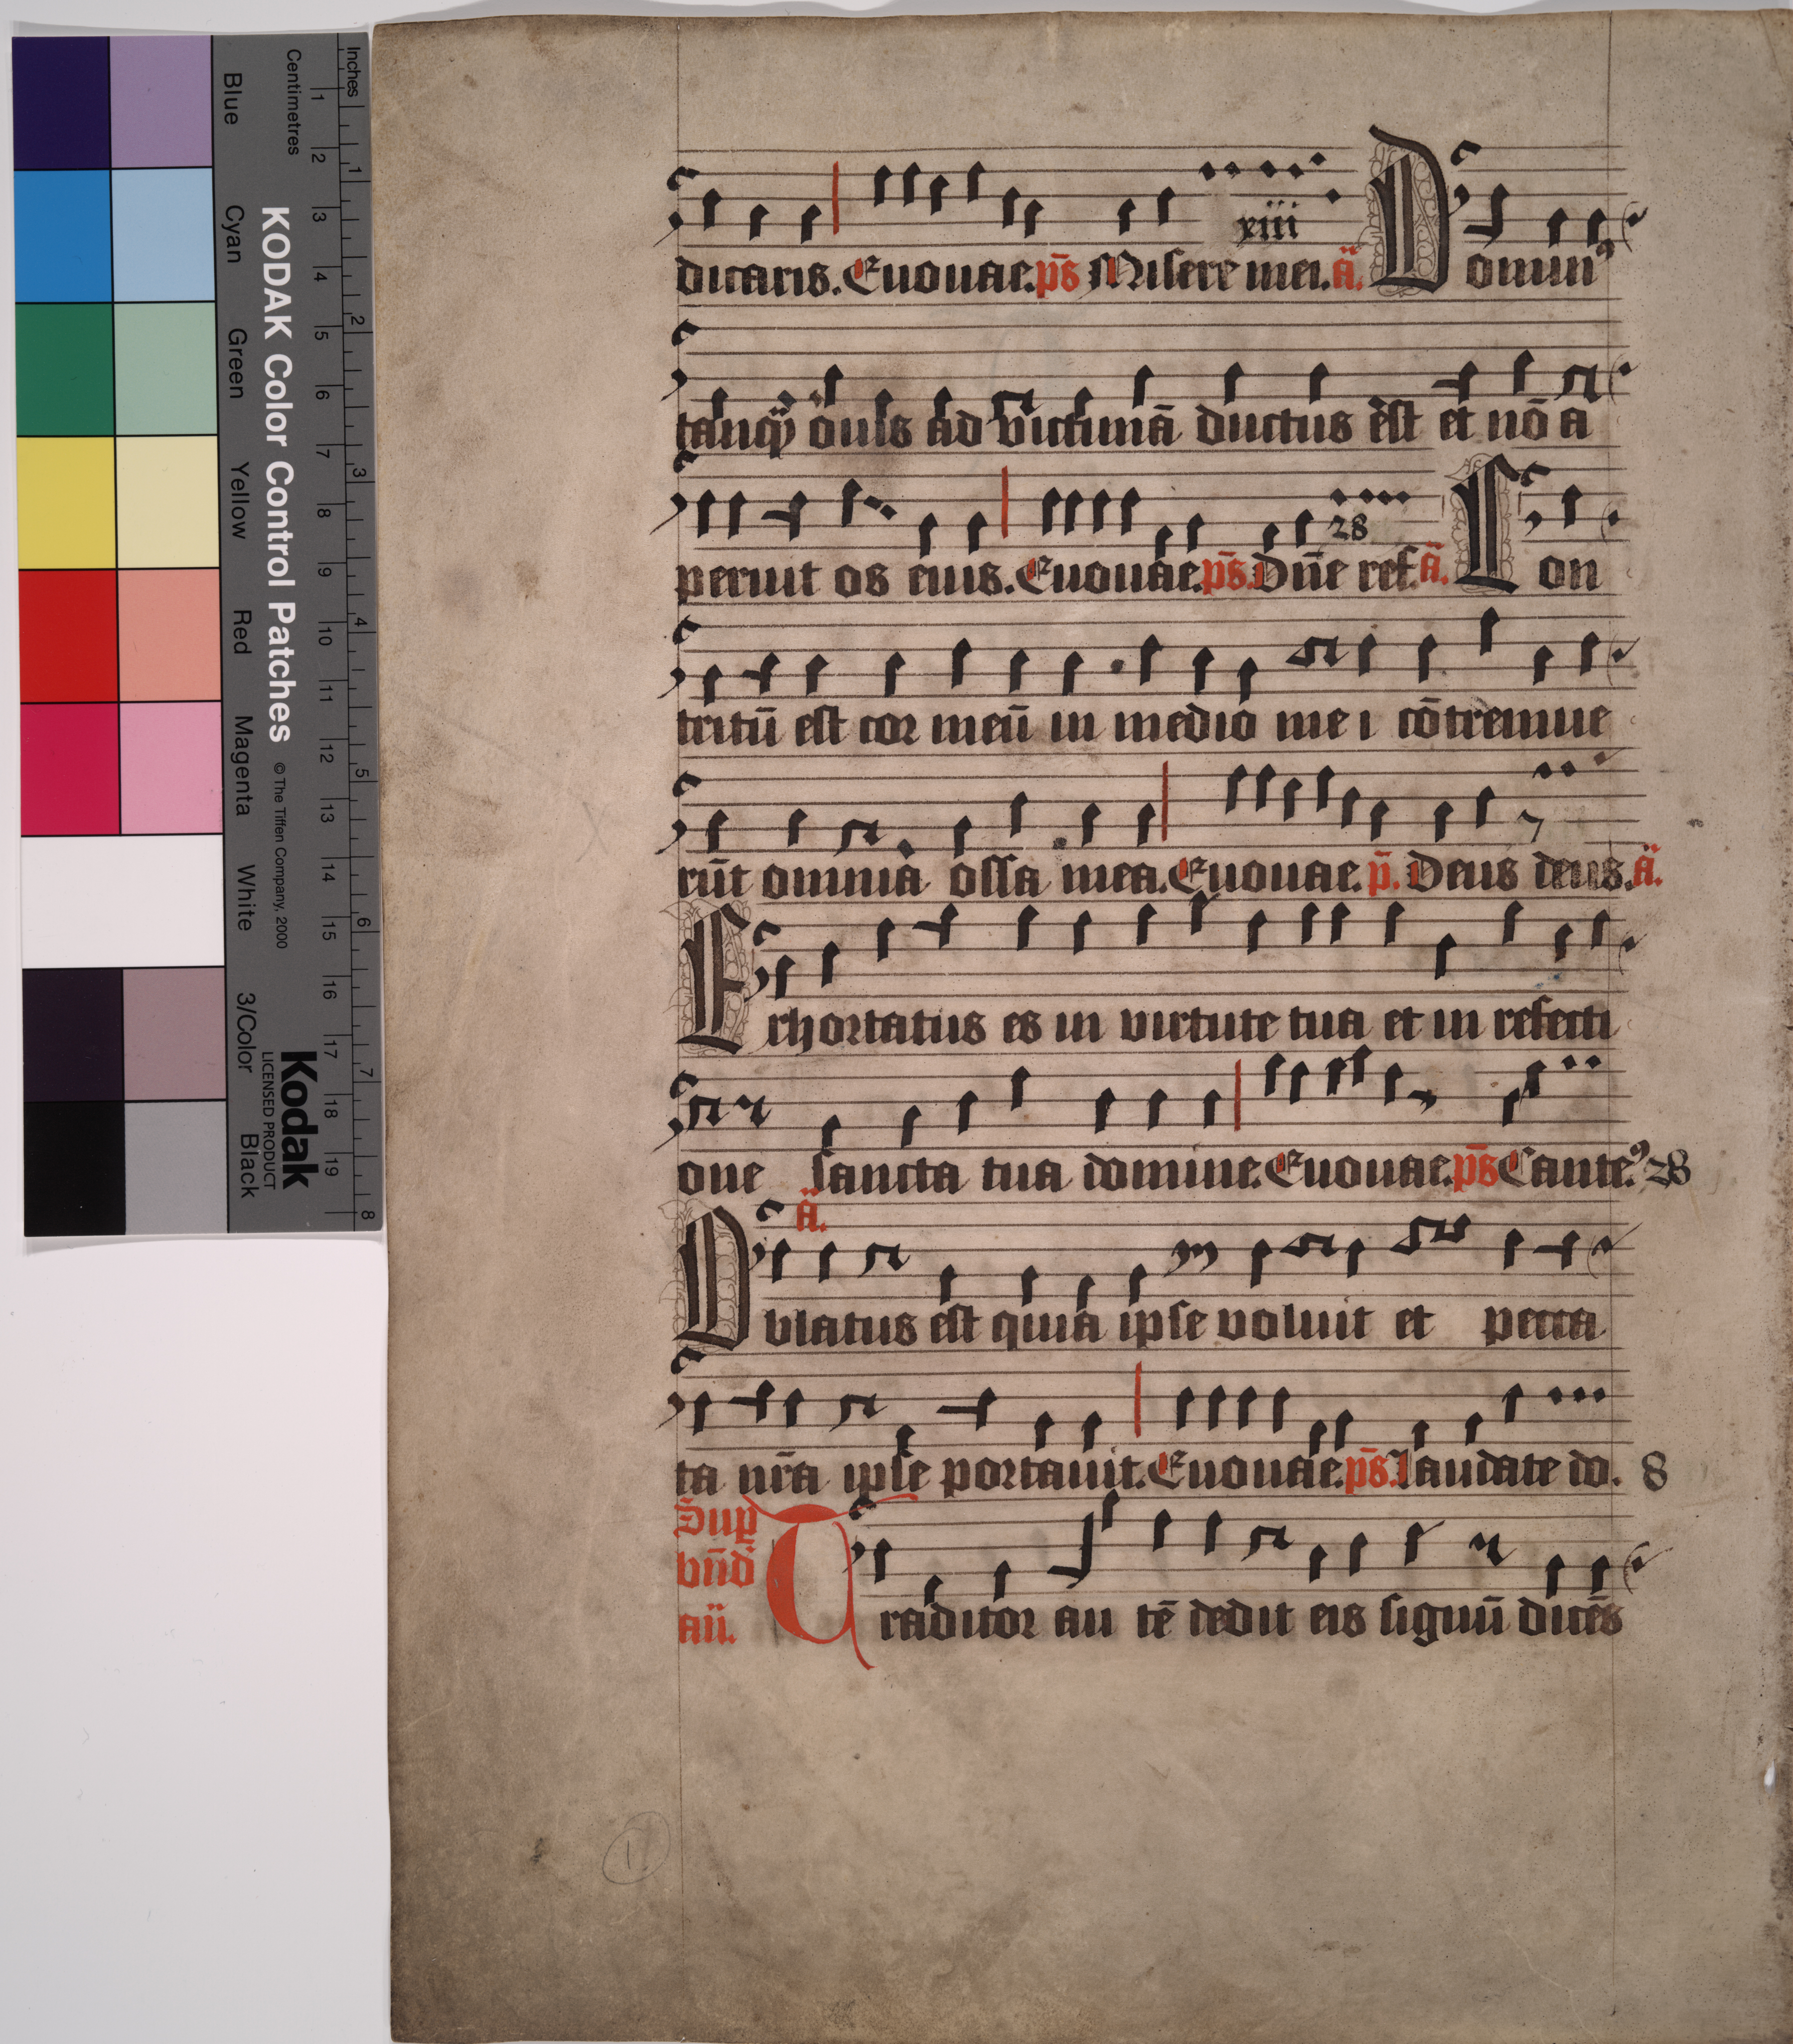 xiii
dicaris. Euouae. ps̄ Misere mei. ā. Domin⁹
tanq̄ ouis ad victimā ductus est et nō a
28
peruit os eius. Euouae. ps̄. Dn̄e ref. ā. Con
tritū est cor meū in medio mei cōtremue
rūt omnia ossa mea. Euouae. p̄. Deus deus. ā.
Exhortatus es in virtute tua et in refecti
one sancta tua domine. Euouae. ps̄ Cante⁹ 28
ā.
Oblatus est quia ipse voluit et pecca
ta nr̄a ipse portauit. Euouae. ps̄. Laudate do. 8
Sup
bn̄d
an̄.
Traditor au tē dedit eis signū dicēs
11
Inches
Centimetres
1 2 3 4 5 6 7 8
1 2 3 4 5 6 7 8 9 10 11 12 13 14 15 16 17 18 19
KODAK Color Control Patches
© The Tiffen Company, 2000
Kodak
LICENSED PRODUCT
Blue
Cyan
Green
Yellow
Red
Magenta
White
3/Color
Black